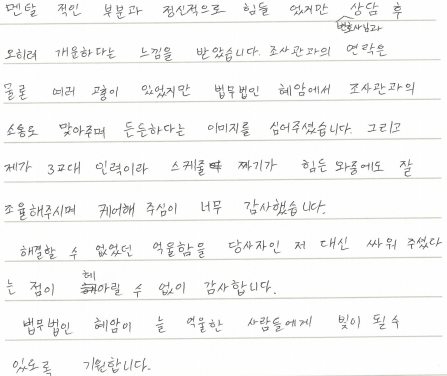 멘탈 적인 부분과 정신적으로 힘들 었지만 상담 후
변호사님과
오히려 개운하다는 느낌을 받았습니다. 조사관과의 연락은
물론 여러 고충이 있었지만 법무법인 혜암에서 조사관과의
소통도 맞아주며 든든하다는 이미지를 심어주셨습니다. 그리고
제가 3교대 인력이라 스케줄 짜기가 힘든 와중에도 잘
조율해주시며 케어해 주심이 너무 감사했습니다.
해결할 수 없었던 억울함을 당사자인 저 대신 싸워 주셨다
는 점이 헤아릴 수 없이 감사합니다.
법무법인 혜암이 늘 억울한 사람들에게 빛이 될 수
있도록 기원합니다.